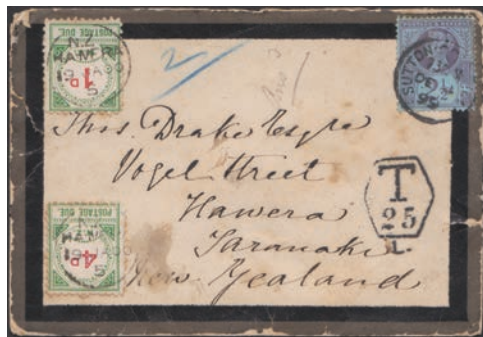 N.Z.
HAWERA
5
POSTAGE DUE.
1D
SUTTON
95
2
Thos. Drake Esqre
Vogel Street
Hawera
Taranaki
New Zealand
T
25
L.
POSTAGE DUE.
4D
5